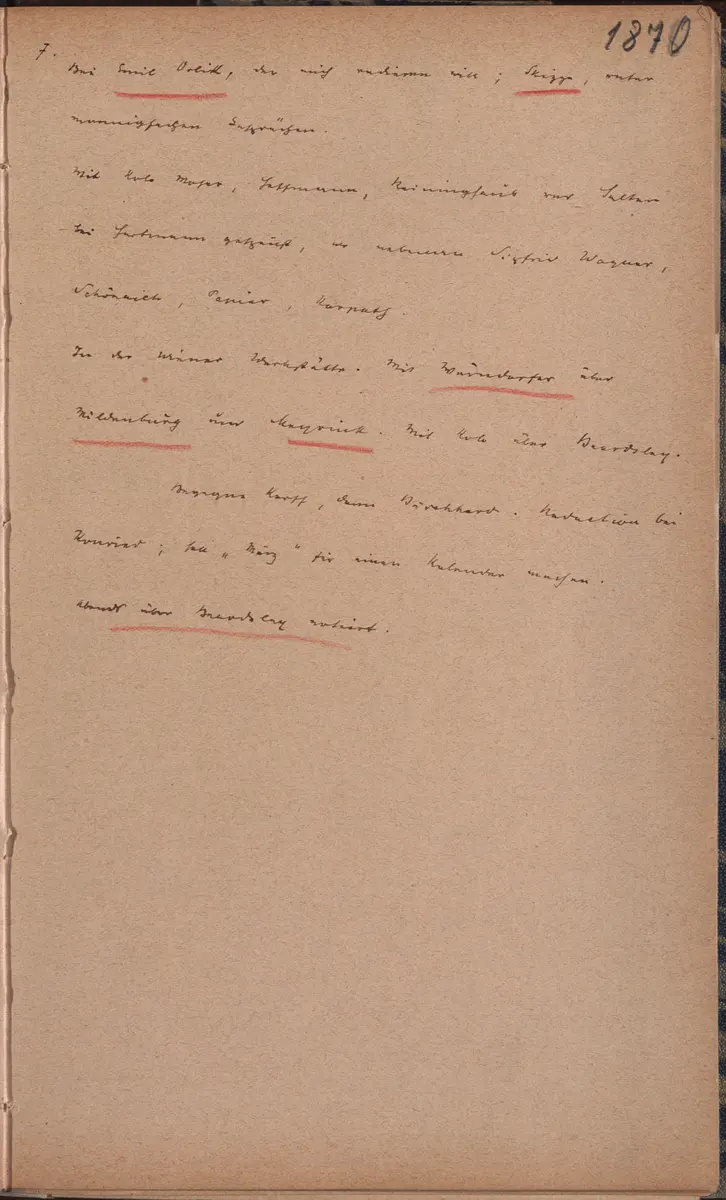 1870
7.
Bei Emil Orlik, der mich radieren will; Skizze, unter
mannigfachen Gesprächen.
Mit Kolo Moser, Hoffmann, Reininghaus und Salten
bei Hartmann gespeist, wo nebenan Sigfrid Wagner,
Schönaich, Papier, Karpath.
In der Wiener Werkstätte. Mit Wärndorfer über
Mildenburg und Meyrink. Mit Kolo über Beardsley.
Begegne Korff, dann Burckhard. Redaction bei
Konried; soll „März“ für einen Kalender machen.
Abends über Beardsley notiert.